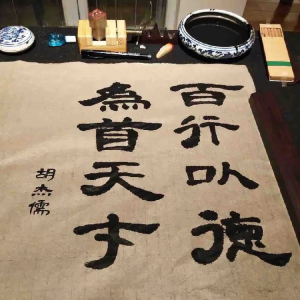 百行以德
為首天
胡杰儒